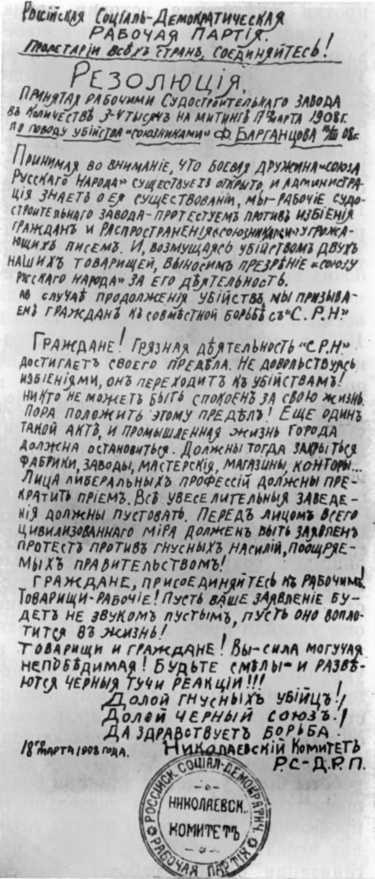 Россійская Соціаль-Демократическая
Рабочая Партія.
Пролетаріи всѣхъ странъ, соединяйтесь!
Резолюція,
принятая рабочими Судостроительнаго завода
въ количествѣ 3-4 тысячъ на митингѣ 17го марта 1908 г.
по поводу убійства «союзниками» Ф. Барганцова
Принимая во вниманіе, что боевая дружина «Союза
Русскаго Народа» существуетъ открыто, и администра-
ція знаетъ о ея существованіи, мы-рабочіе Судо-
строительнаго завода-протестуемъ противъ избіенія
гражданъ и распространенія «союзниками» угрожа-
ющихъ писемъ. И, возмущаясь убійствомъ двухъ
нашихъ товарищей, выносимъ презрѣніе «Союзу
Русскаго Народа» за его дѣятельность.
Въ случаѣ продолженія убійствъ, мы призыва-
емъ гражданъ къ совмѣстной борьбѣ съ "С.Р.Н."
Граждане! Грязная дѣятельность "С.Р.Н"
достигаетъ своего предѣла. Не довольствуясь
избіеніями, онъ переходитъ къ убійствамъ!
Никто не можетъ быть спокоенъ за свою жизнь.
Пора положить этому предѣлъ! Еще одинъ
такой актъ, и промышленная жизнь города
должна остановиться. Должны тогда закрыться
фабрики, заводы, мастерскія, магазины, конторы...
Лица либеральныхъ профессій должны пре-
кратить пріемъ. Всѣ увеселительныя заведе-
нія должны пустовать. Передъ лицомъ всего
цивилизованнаго міра долженъ быть заявленъ
протестъ противъ гнусныхъ насилій, поощряе-
мыхъ правительствомъ!
Граждане, присоединяйтесь къ рабочимъ!
Товарищи-рабочіе! Пусть ваше заявленіе бу-
детъ не звукомъ пустымъ, пусть оно вопло-
тится въ жизнь!
Товарищи и граждане! Вы-сила могучая
непобѣдимая! Будьте смѣлы-и развѣ-
ются черныя тучи реакціи!!!
Долой гнусныхъ убійцъ!
Долой черный союзъ!
Да здравствуетъ борьба!
18го марта 1908 года. Николаевскій Комитетъ
Р.С-Д.Р.П.
Россійск. Соціал-Демократич.
Николаевск.
Комитетъ
Рабочая Партія